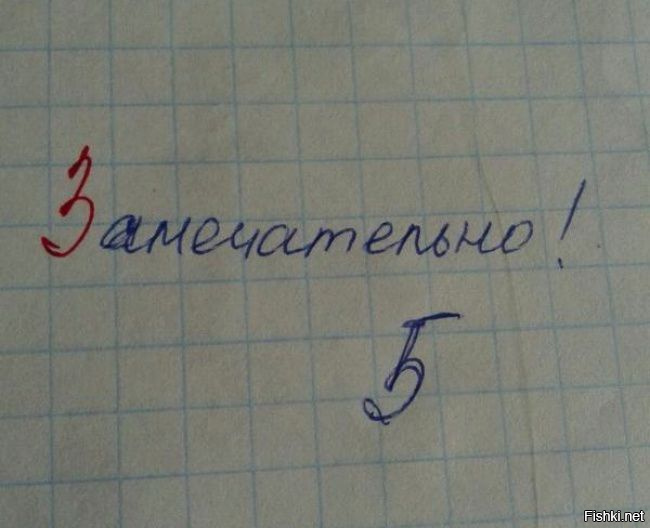 Замечательно!
5
Fishki.net